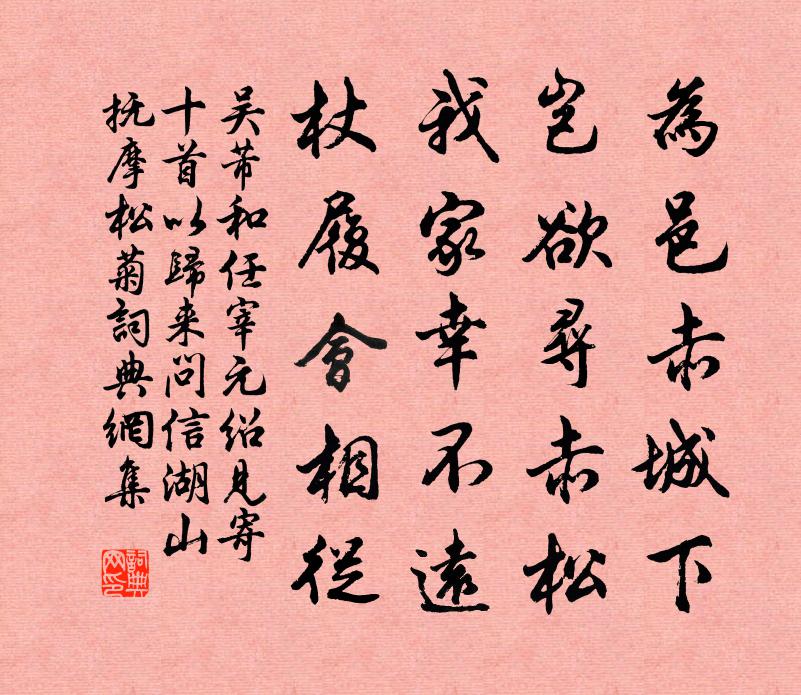 為邑赤城下
豈欲尋赤松
我家幸不遠
杖履會相從
吴芾和任宰元紹見寄
十首以歸来問信湖山
抚摩松菊詞典網集
詞典网印